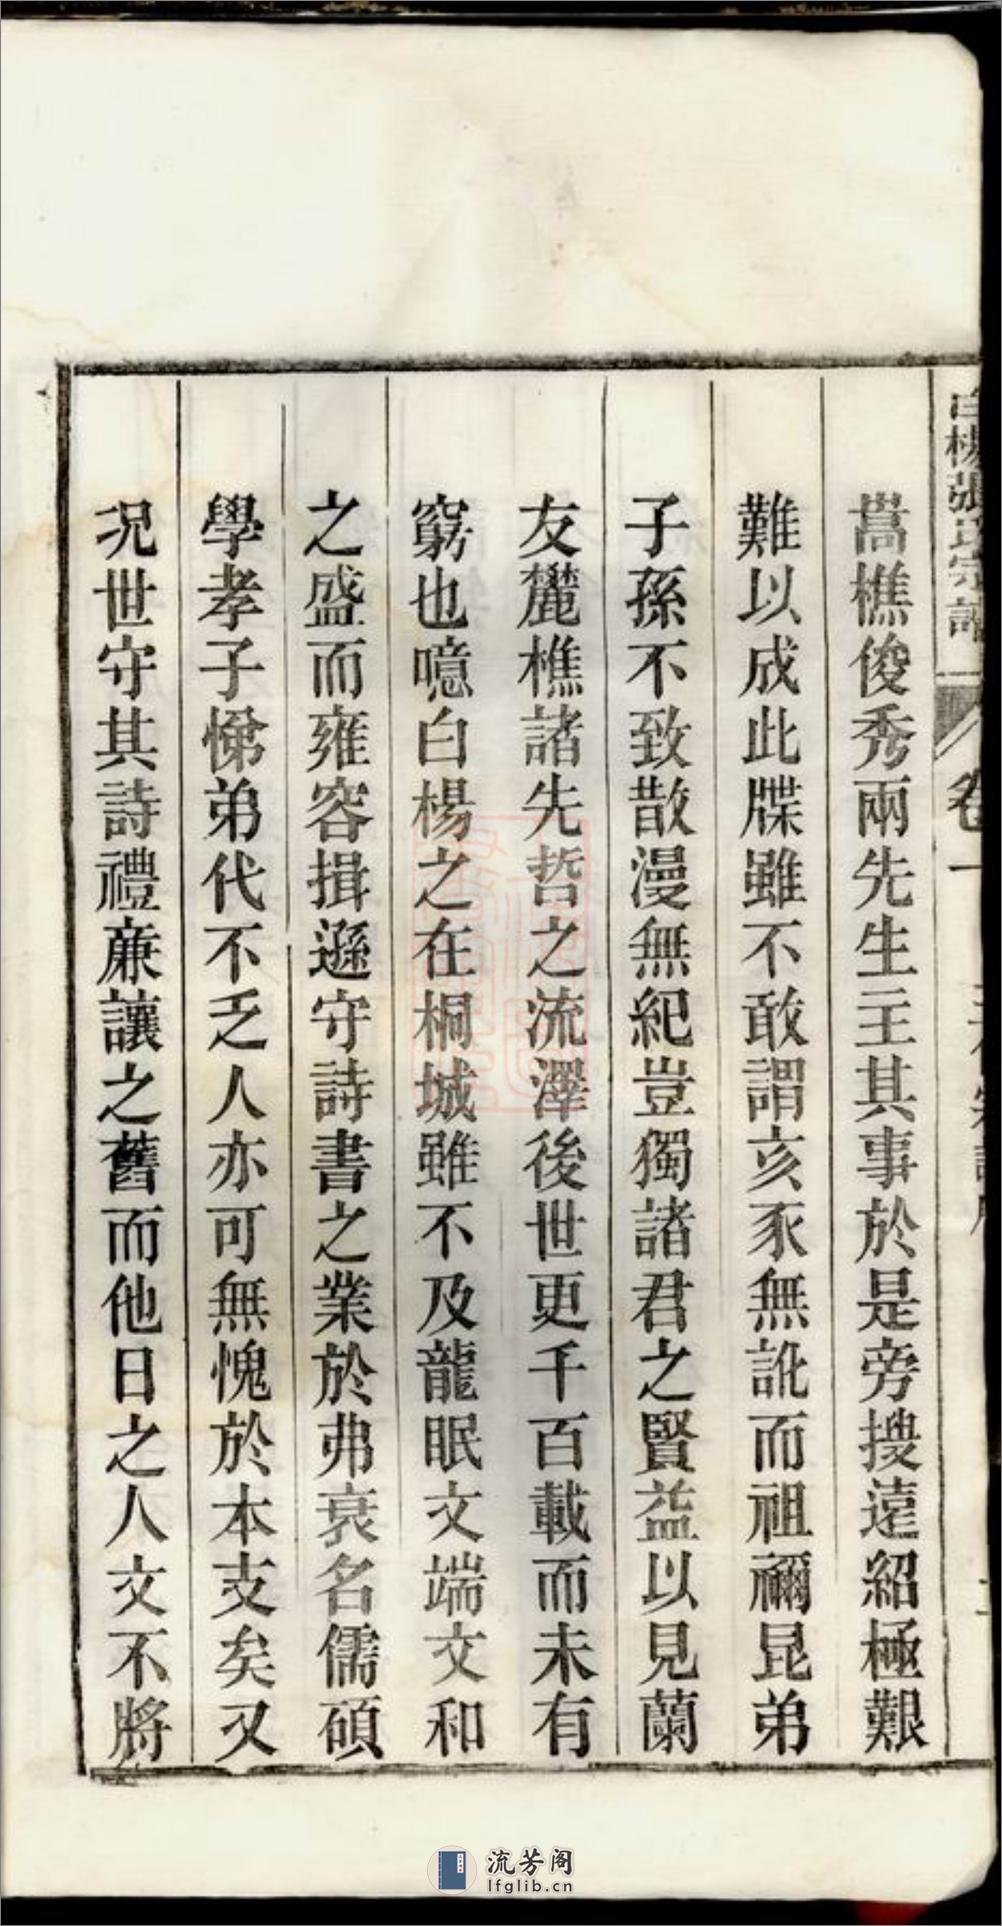 白楊張氏宗譜 卷一
嵩樵俊秀兩先生主其事於是旁搜遠紹極艱
難以成此牒雖不敢謂亥豕無訛而祖禰昆弟
子孫不致散漫無紀豈獨諸君之賢益以見蘭
友麓樵諸先哲之流澤後世更千百載而未有
窮也噫白楊之在桐城雖不及龍眠文端文和
之盛而雍容揖遜守詩書之業於弗衰名儒碩
學孝子悌弟代不乏人亦可無愧於本支矣又
況世守其詩禮亷讓之舊而他日之人文不將
流芳阁
lfglib.cn